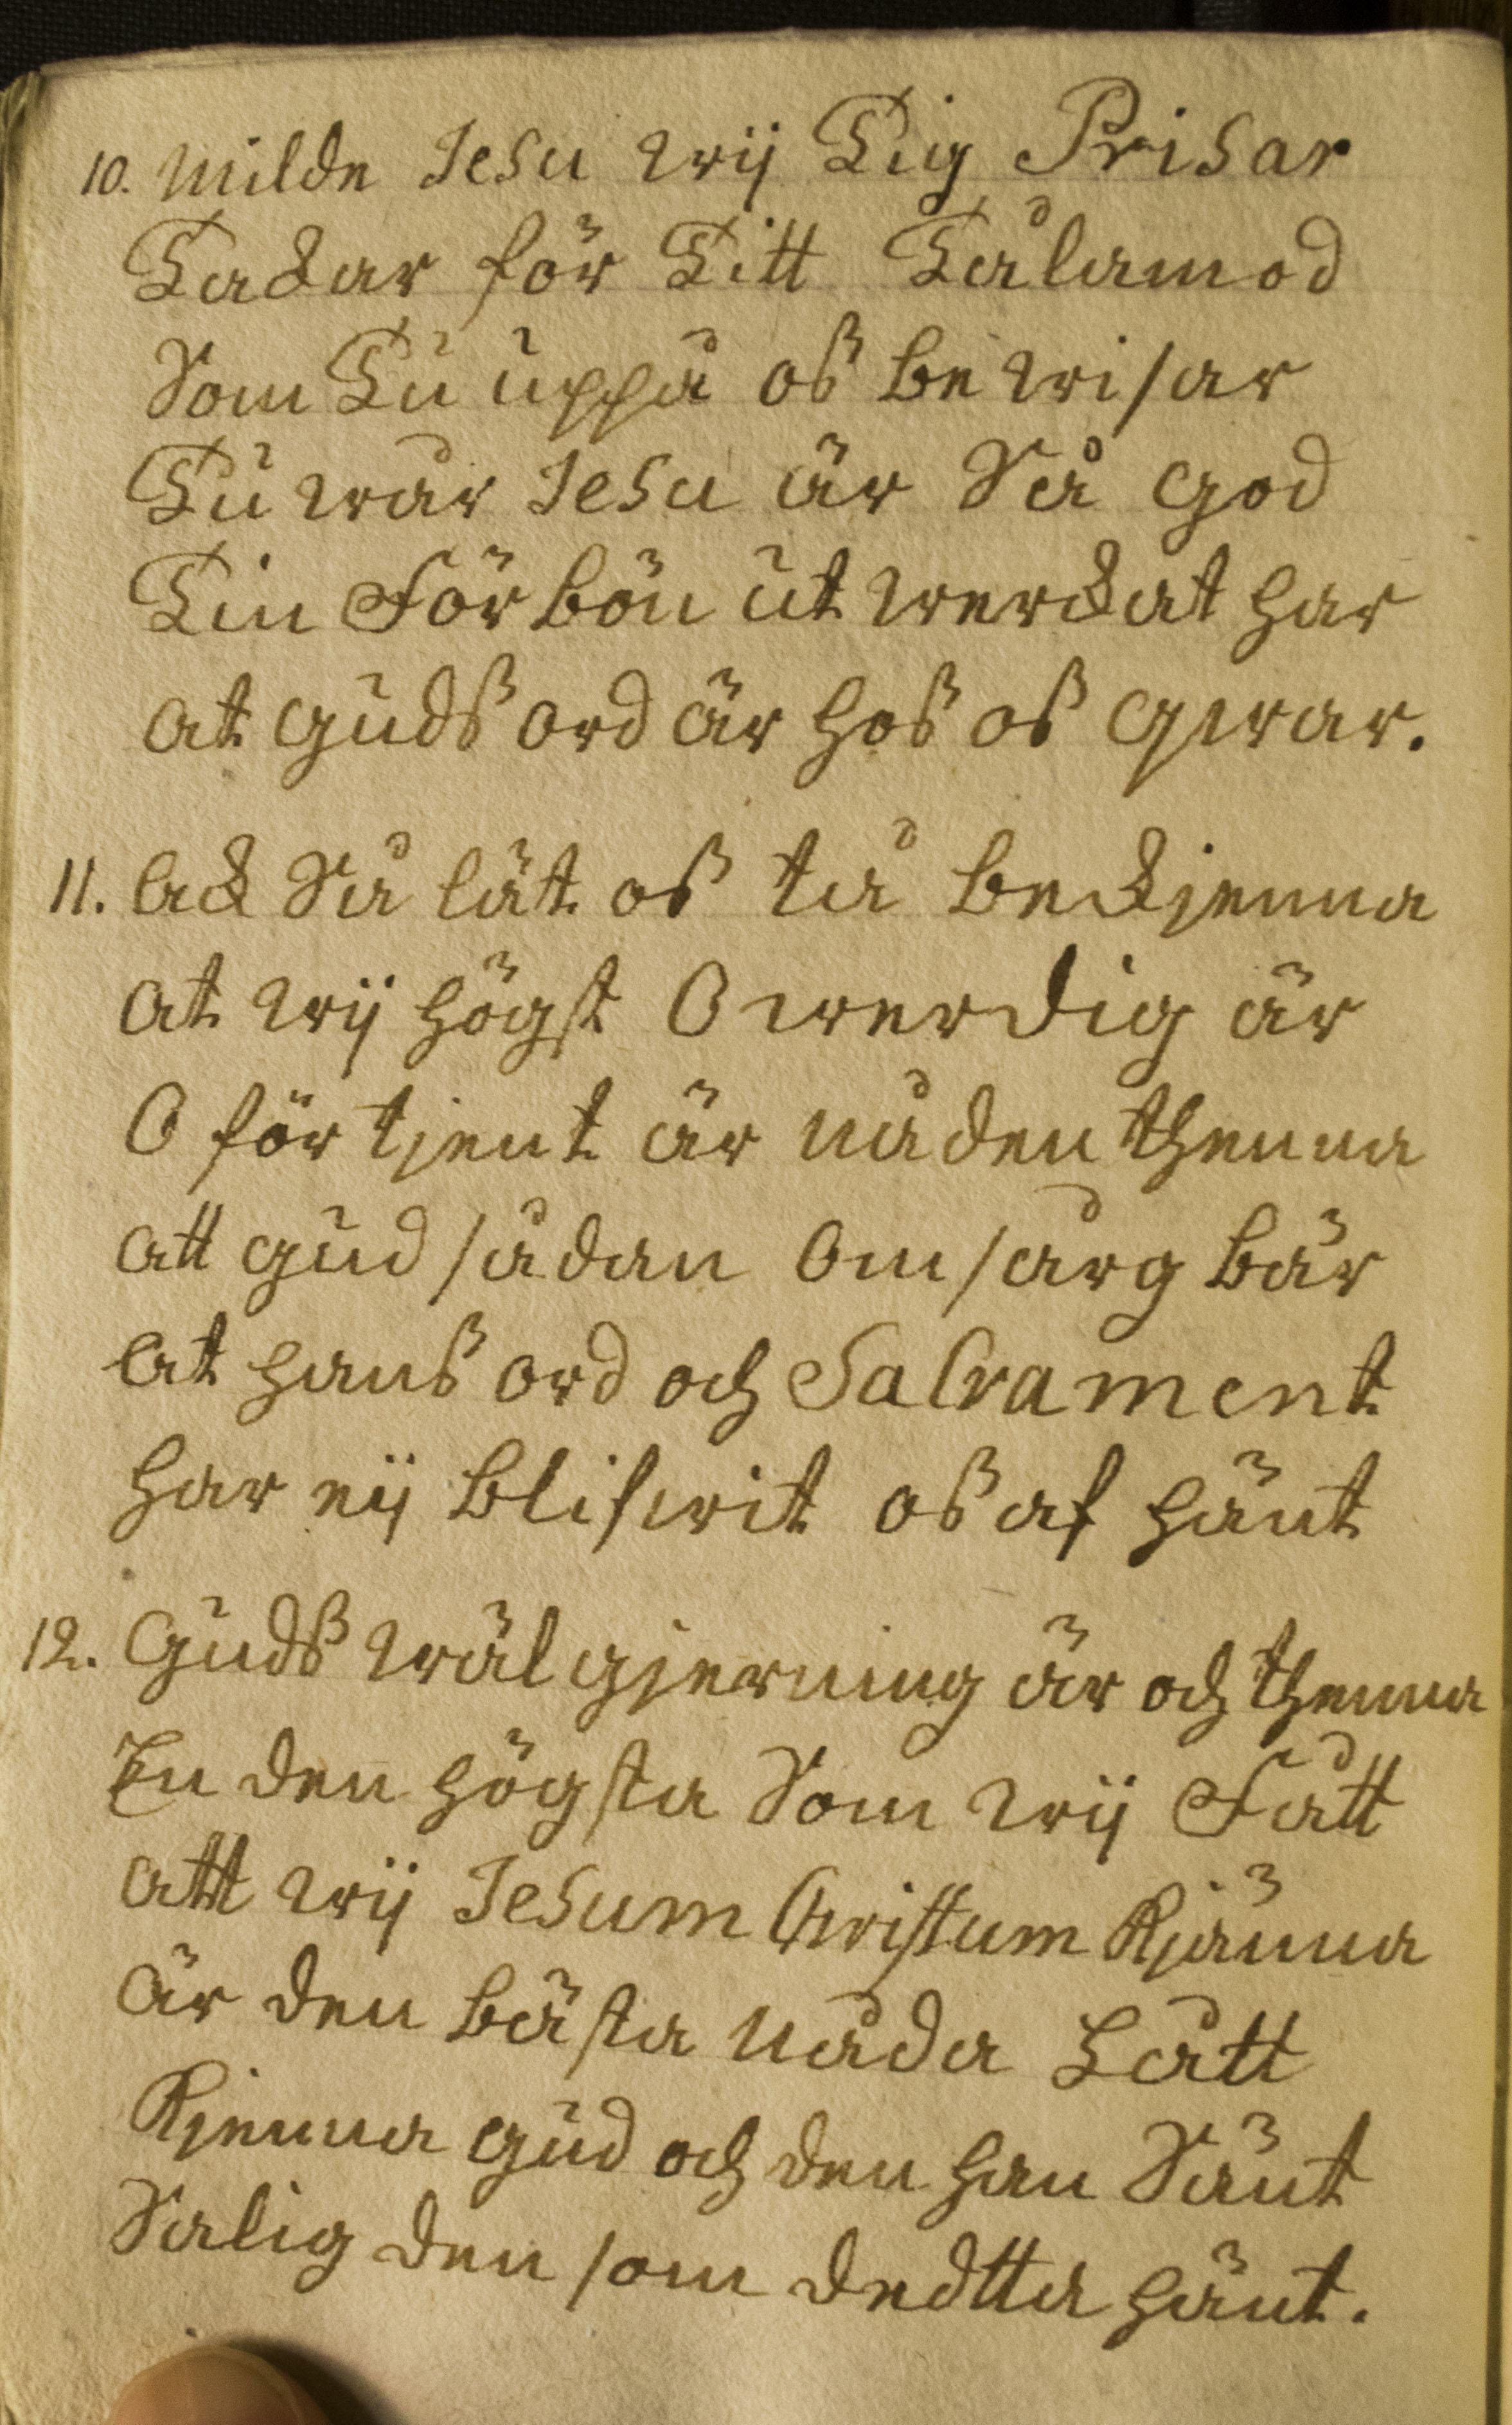 10. Milde Jesu wij Tig Prisar
Tackar för Titt Tålamod
Som Tu uppå oß bewisar
Tu wår Jesu är Så god
Tin Förbön utwerckat har
at gudß ord är hoß oß qwar.
11. Ack Så lät oß tå beckjenna
at wij högst Owerdig är
Oförtjent är nåden thenna
att gud sådan Omsårg bär
at hanß ord och Sacrament
har eij blifwit oß af hänt
12. Gudß wälgjerning är och thenna
En den högsta Som wij Fått
att wij Jesum Christum Kjänna
är den bästa nåda Lått
Kjenna gud och den han Sänt
Salig den som dedtta hänt.